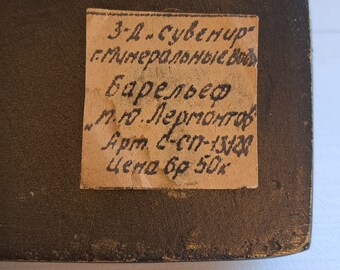 З-д „Сувенир"
г. Минеральные Воды
Барельеф
„М.Ю. Лермонтов"
Арт. С-СП-
Цена 6р 50к